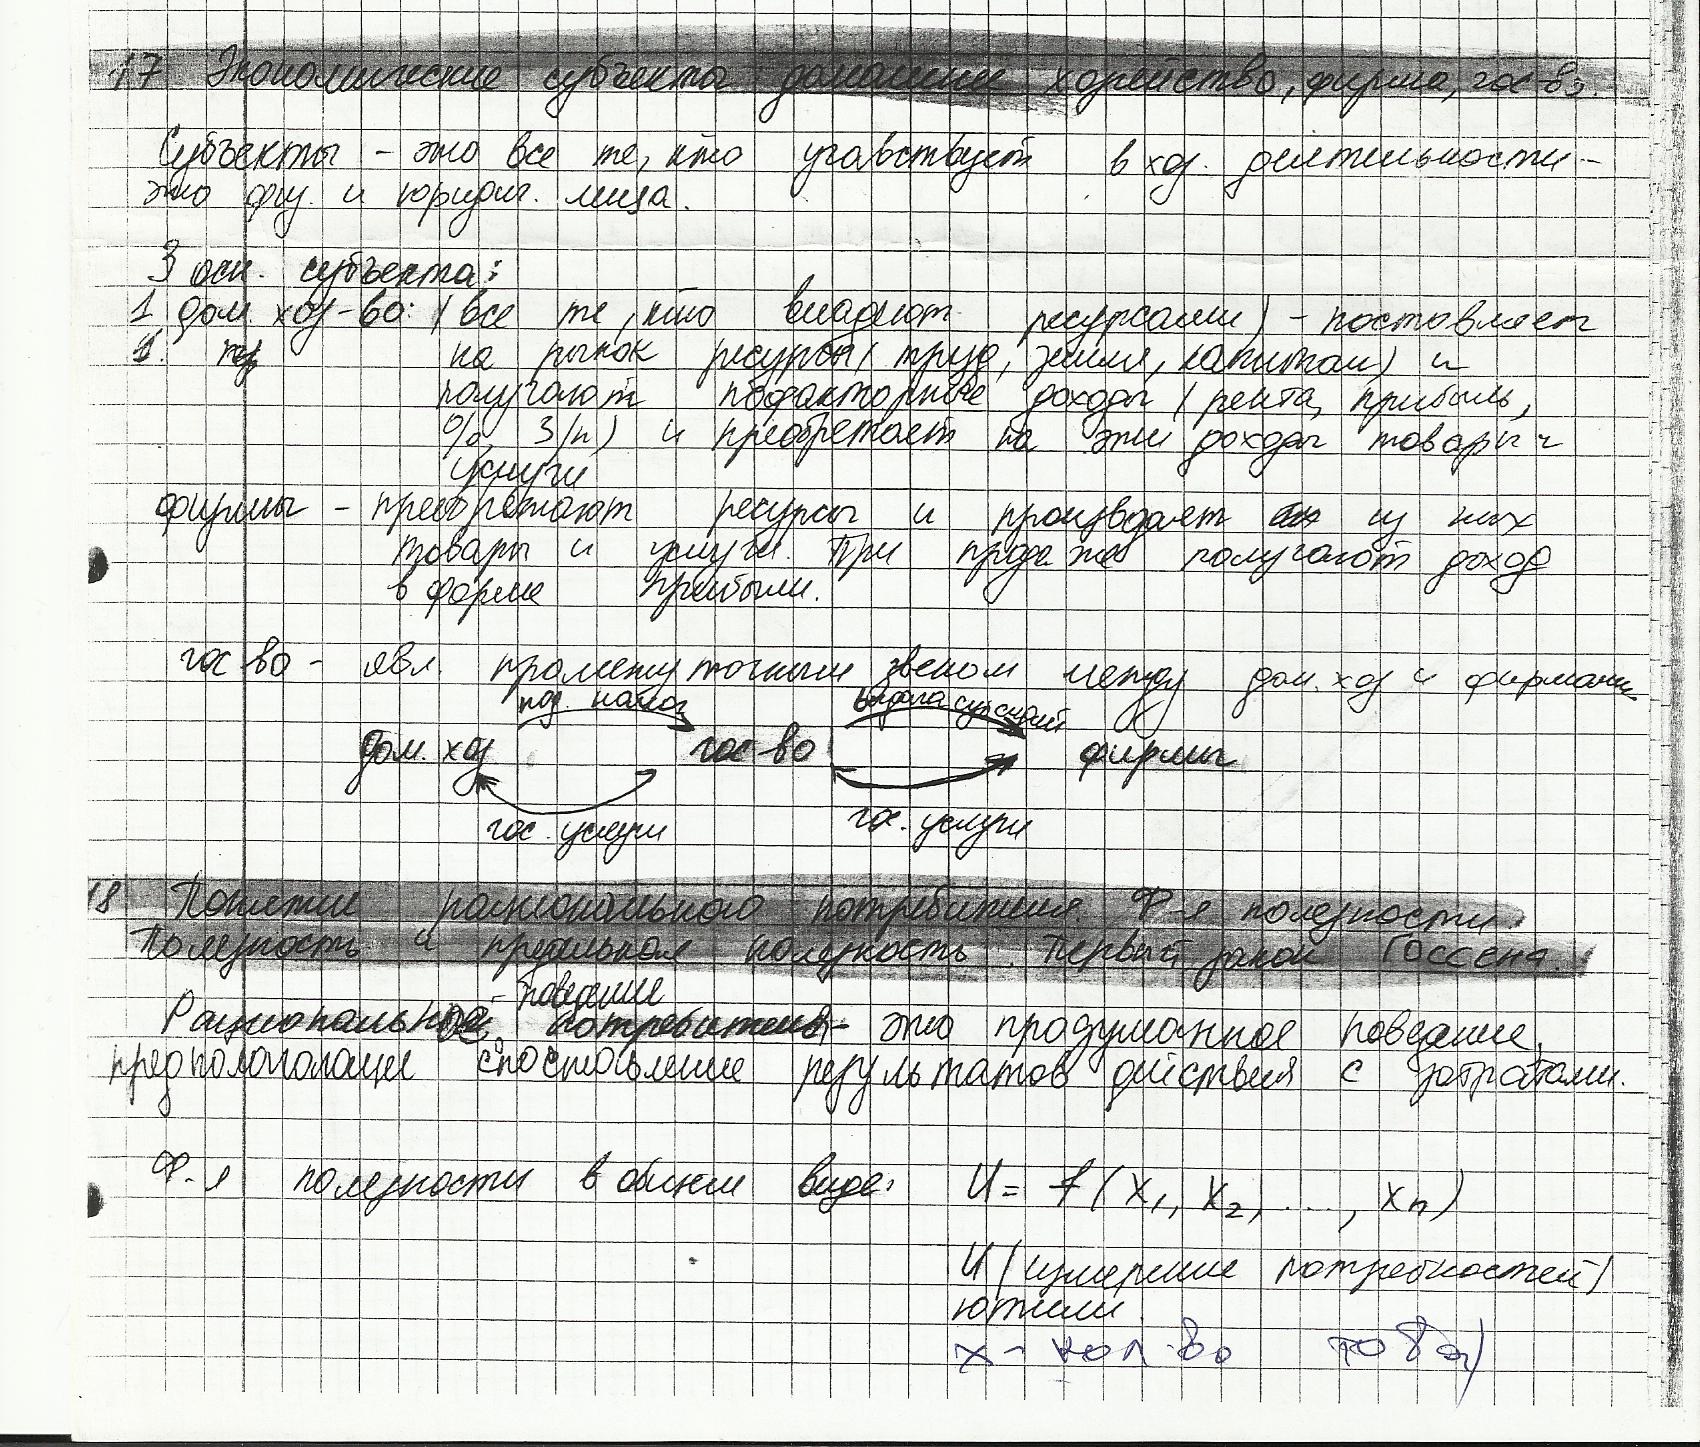 17 Экономические субъекты домашнее хозяйство, фирма, гос-во.
Субъекты - это все те, кто участвует в хоз. деятельности -
это физ. и юридич. лица.
3 осн. субъекта:
1 дом. хоз-во: (все те, кто владеют ресурсами) - поставляет
1. на рынок ресурсы (труд, земля, капитал) и
получают пофакторные доходы (рента, прибыль,
%, З/п) и преобретает на эти доходы товары и
услуги
фирмы - преобретают ресурсы и производят из них
товары и услуги. При продаже получают доход
в форме прибыли.
гос-во - явл. промежуточным звеном между дом. хоз и фирмами
под. налог
выдача субсидий
дом. хоз гос-во фирмы
гос. услуги гос. услуги
18 Понятие рационального потребителя. Ф-я полезности.
Полезность и предельная полезность. Первый закон Госсена.
поведение
Рациональное потребителя - это продуманное поведение,
предпологающие споставление результатов действия с затратами.
Ф-я полезности в общем виде: U = f (x1, x2, ..., xn)
U (измерение потребностей)
ютили.
x - кол-во товар